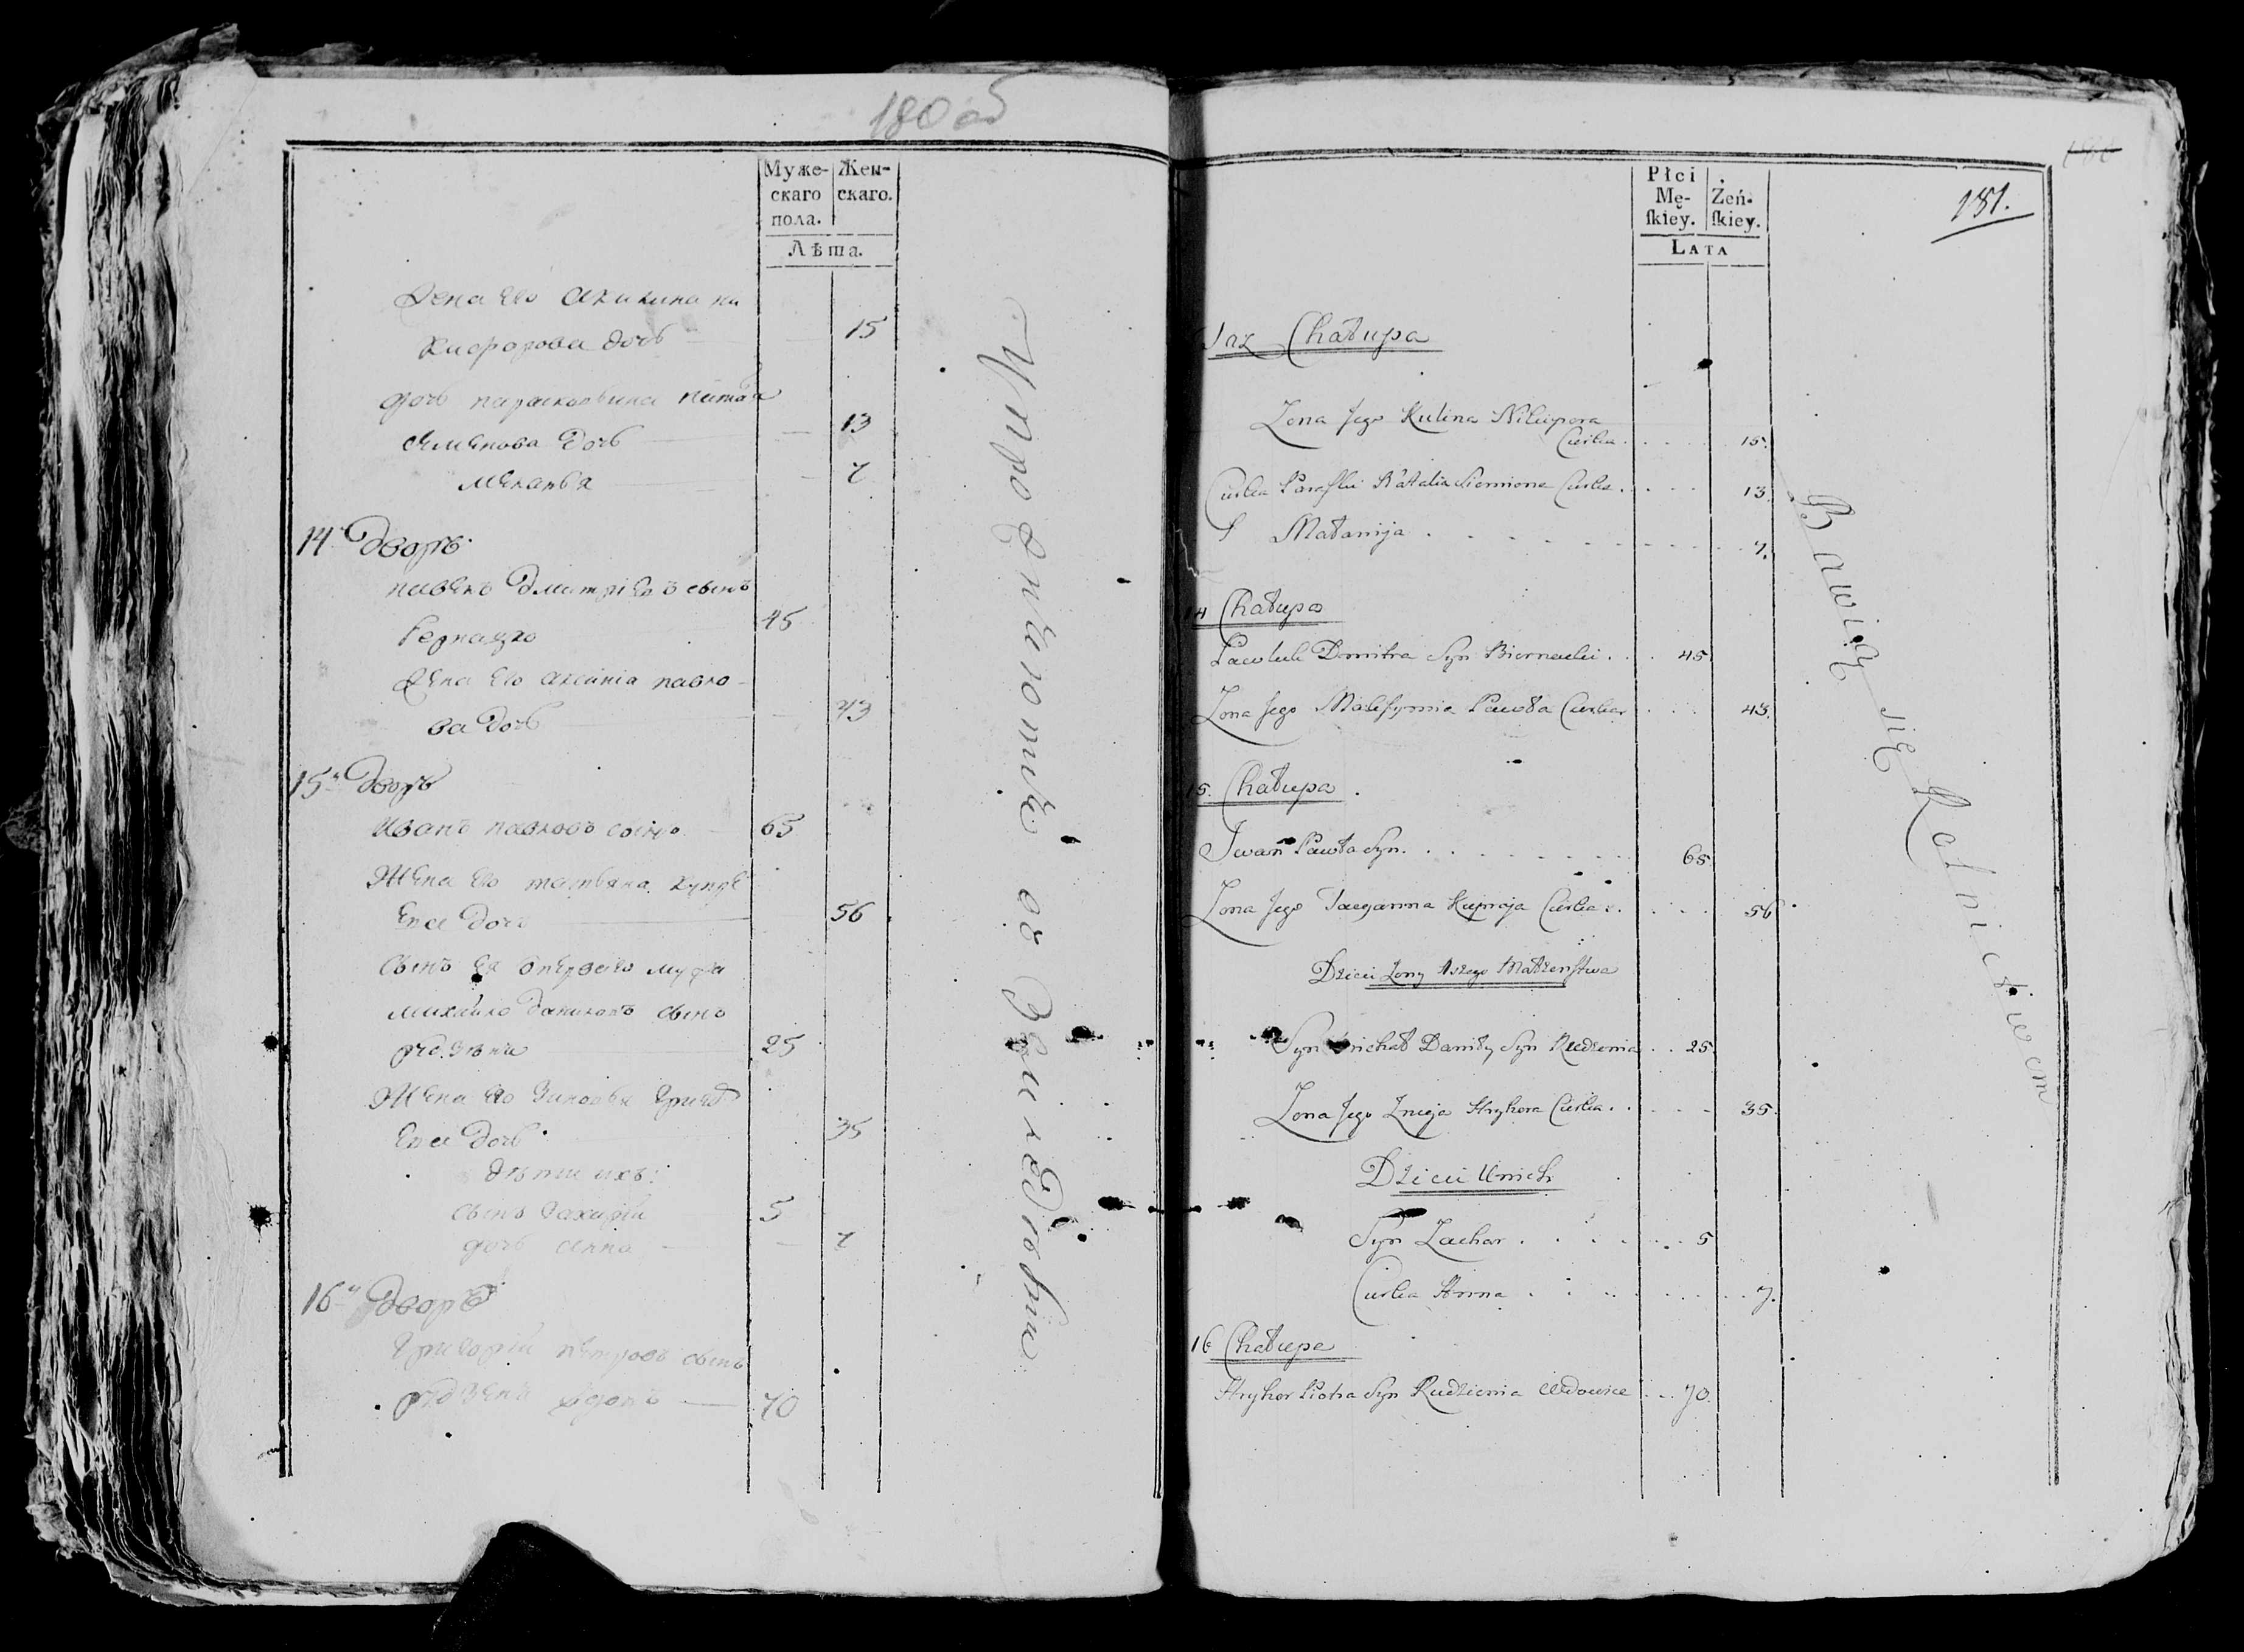 180 об
Муже-
скаго
пола.
Жен-
скаго.
Лѣта.
Жена его Акилина Ни
кифорова дочь 15
дочь парасковіина Ната
Семенова дочь 13
Меланья 7
14й дворъ
павелъ дмитріевъ сынъ
45
Жена его Аксинія павло-
ва дочь 43
15й дворъ
Иванъ павловъ сынъ 65
Жена его татьяна купре
ева дочь 56
Сынъ ея отперваго мужа
михайло даниловъ сынъ
рудзѣня 25
Жена его Зиновья Григо
ева дочь 35
дѣти ихъ:
сынъ Захарій 5
дочь Анна 7
16й дворъ
Григорій петровъ сынъ
рудзеня вдовъ 70
Упраждняютсѣ въ Земледѣльстве
181.
Płci
Mę-
ſkiey.
Żeń-
ſkiey.
LATA
Chałupa
Zona Jego Kulina Nikipora
Curka 15.
Curka Paraski Natalia Siemiona Curka 13.
Małanija 7.
14 Chałupa
Pawluk Dmitra Syn Biernacki 45
Zona Jego Maksymia Pawła Curka 43.
15. Chałupa
Jwan Pawła Syn 65
Zona Jego Tacyanna Kupraja Curka 56
Dzieci Zony 1szego Małzeństwa
Syn Michał Daniły Syn Rudzienia 25.
Zona Jego Znieja Hryhora Curka 35.
Dzieci Unich
Syn Zachar 5
Curka Anna 7.
16 Chałupa
Hryhor Piotra Syn Rudzienia Wdowiec 70.
Bawią się Rolnictwem